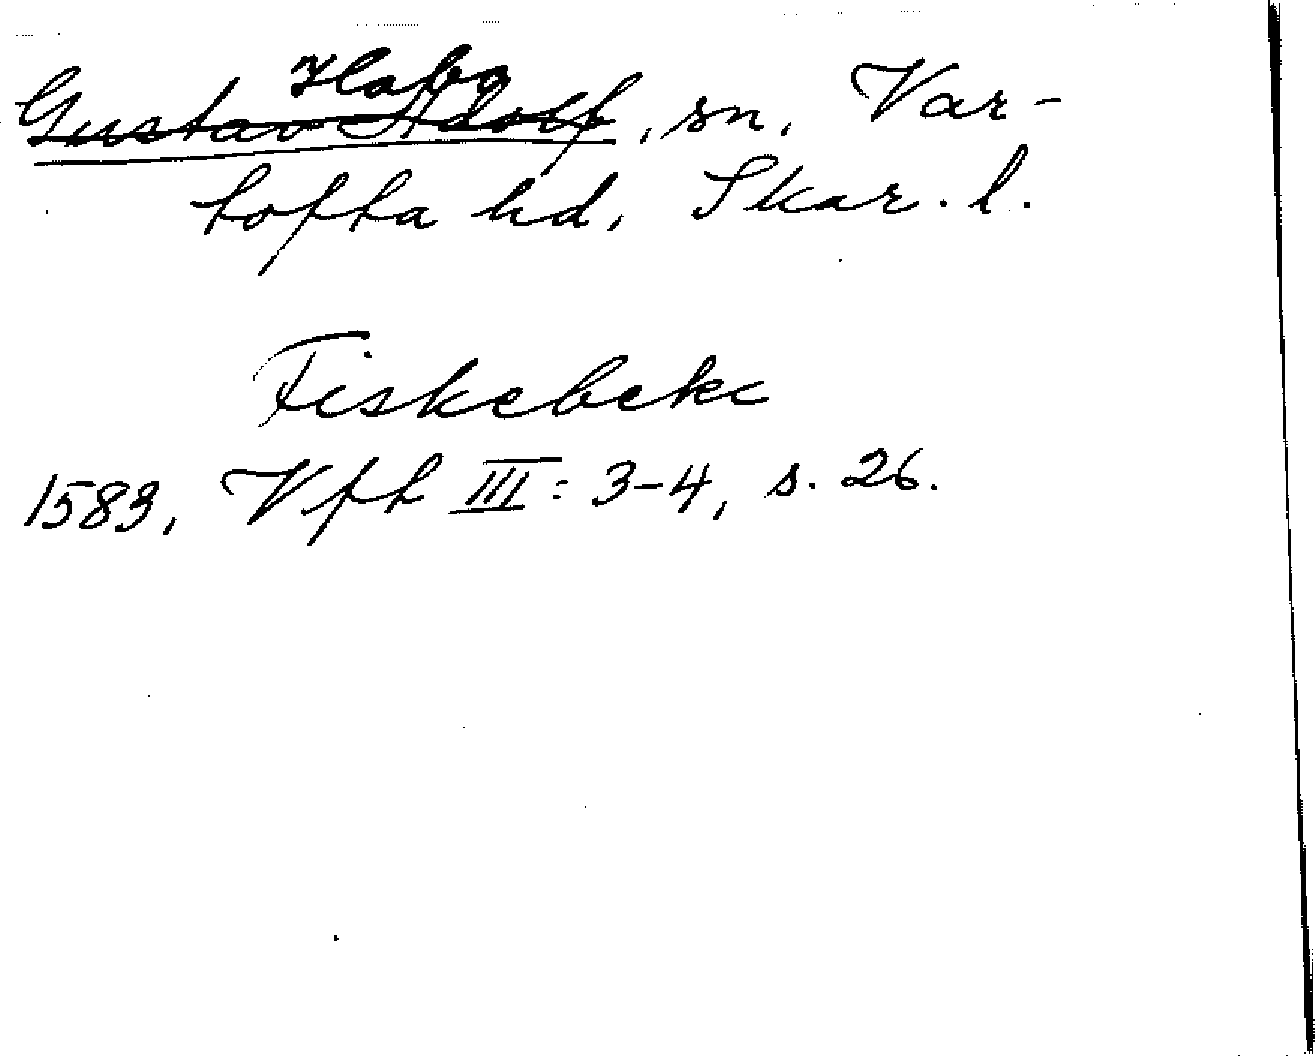 Habo
Gustav Adolf, sn, Var-
tofta hd, Skar. l.
Fiskebeke
1583, Vft III: 3-4, s. 26.